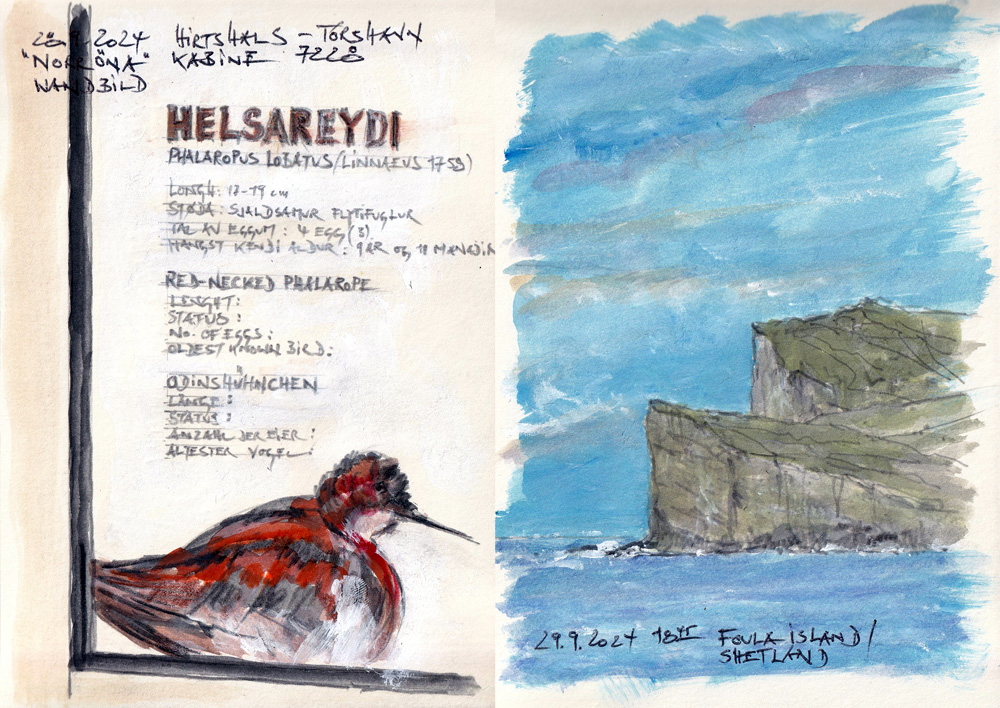 28.9.2024 HIRTSHALS – TÓRSHAVN
"NORRÖNA" KABINE 7228
WANDBILD
HELSAREYDI
PHALAROPUS LOBATUS/(LINNAEUS 1758)
LONGD: 17-19 cm
STØDA: SJALDSAMUR FLYTIFUGLUR
TAL AV EGGUM: 4 EGG (3)
HÆGST KENDI ALDUR: 9 ÁR OG 11 MÁNAÐIR
RED-NECKED PHALAROPE
LENGHT:
STATUS:
No. OF EGGS:
OLDEST KNOWN BIRD:
ODINSHÜHNCHEN
LÄNGE:
STATUS:
ANZAHL DER EIER:
ÄLTESTER VOGEL:
29.9.2024 FOULA ISLAND/
SHETLAND